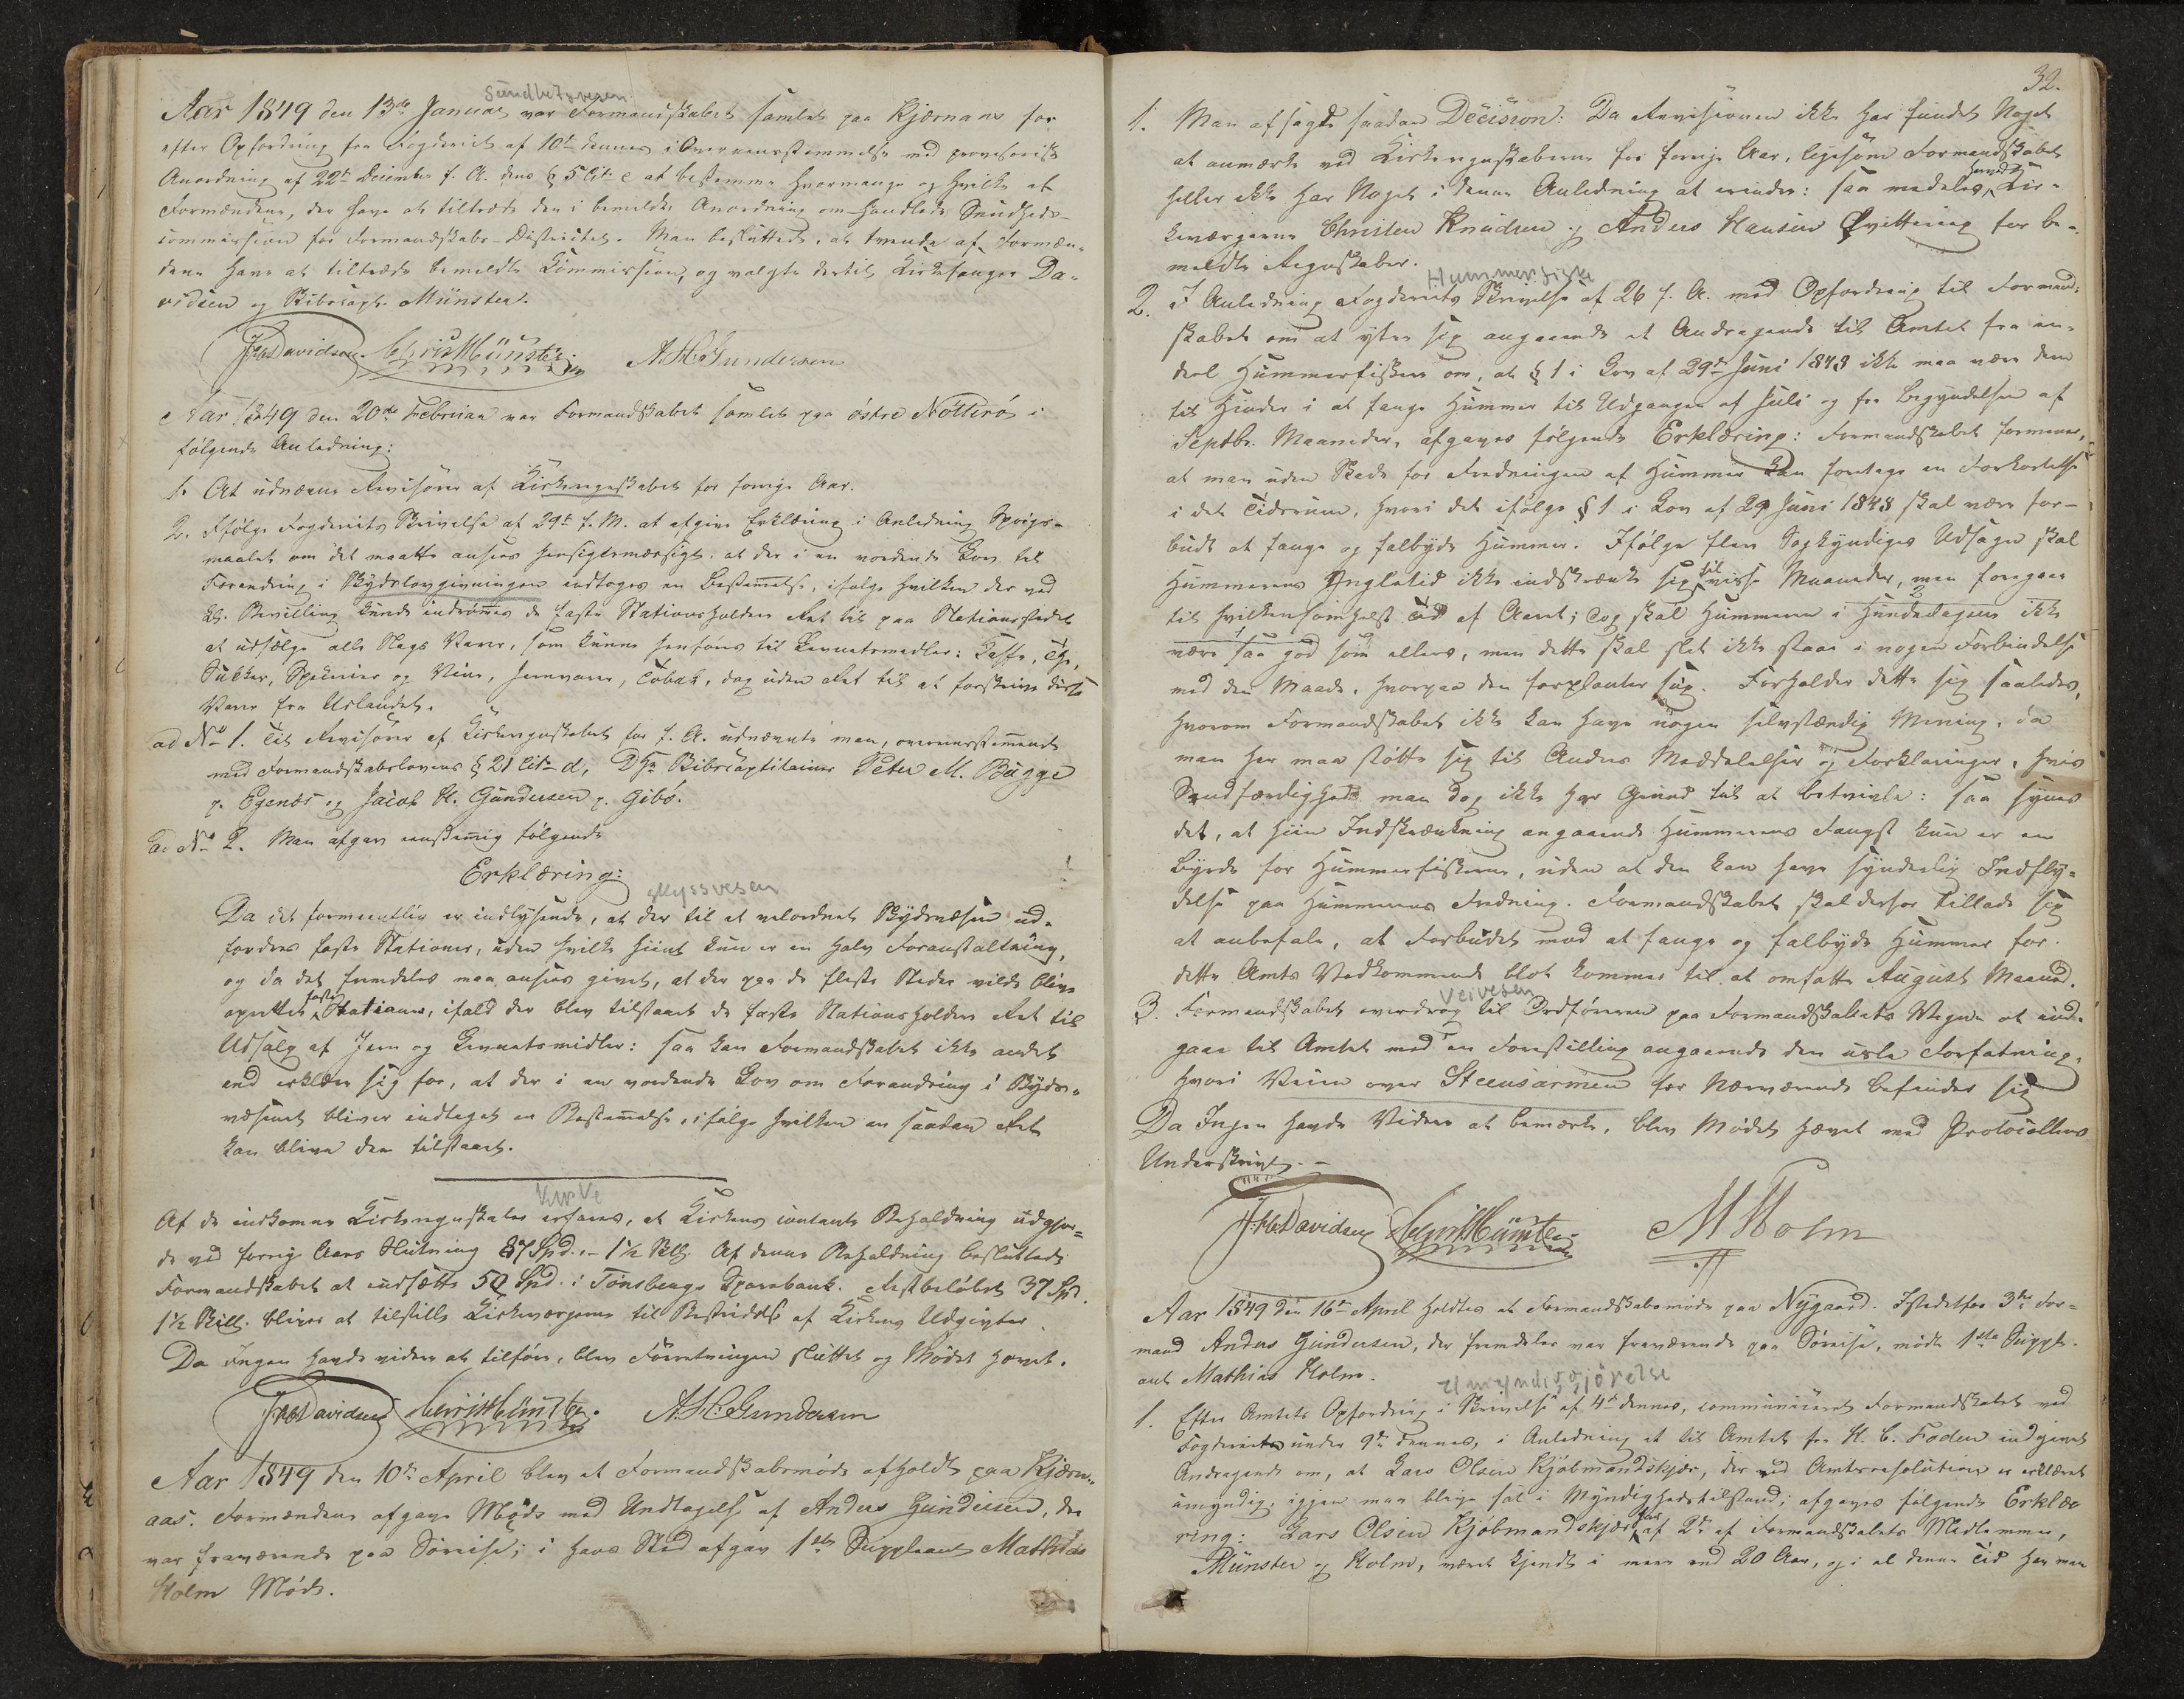 Sundhetsvesen
Aar 1849 den 13de Januar var Formandskabet samlet paa Kjærnaas for
efter Opfordring fra Fogderiet af 10de dennes i Overeensstemmelse med provisorisk
Anordning af 22de December f. A. dens § 5 Litr c at bestemme hvormange og hvilke af
Formændene, der have at tiltræde den i bemeldte Anordning om-handlede Sundheds-
commission for Formandskabs-Districtet. Man besluttede, at tvende af Formæn-
dene have at tiltræde bemeldte Commission, og valgte dertil Kirkesanger Da-
vidsen og Skibscapt. Münster.
Davidsen. Chris Münster. A. H. Gundersen
Aar 1849 den 20de Februar var Formandskabet samlet paa østre Nøtterø i
følgende Anledning:
1. At udnævne Revisorer af Kirkeregnskabet for forrige Aar.
2. Ifølge Fogderiets Skrivelse af 29de f. M. at afgive Erklæring i Anledning Spørgs-
maalet om det maatte ansees hensigtsmæssigt, at der i en vordende Lov til
Forandring i Skydslovgivningen indtoges en Bestemmelse, ifølge hvilken der ved
Kgl. Bevilling kunde indrømmes de faste Stationsholdere Ret til paa Stationsstedet
at udsælge alle Slags Varer, som kunne henføres til Levnetsmidler: Kaffe, The,
Sukker, Specerier og Vine, Jernvarer, Tobak, dog uden Ret til at forskrive disse
Varer fra Udlandet.
ad No 1. Til Revisorer af Kirkeregnskabet for f. A. udnævnte man, overeensstemmende
med Formandskabslovens § 21 Litr d, DHr Skibscaptitainer Peter M. Bugge
p. Egenæs og Jacob H. Gundersen p. Gibø.
ad No 2. Man afgav eenstemmig følgende
Erklæring:
skyssvesen
Da det formeentlig er indlysende, at der til et velordnet Skydsvæsen ud-
fordres faste Stationer, uden hvilke hiint kun er en halv Foranstaltning,
og da det fremdeles maa ansees givet, at der paa de fleste Steder vilde blive
oprettet faste Stationer, ifald der blev tilstaaet de faste Stationsholdere Ret til
Udsalg af Jern og Levnetsmidler: saa kan Formandskabet ikke andet
end erklære sig for, at der i en vordende Lov om Forandring i Skyds-
væsenet bliver indtaget en Bestemmelse, ifølge hvilken en saadan Ret
kan blive dem tilstaaet.
Af de indkomne Kirkeregnskaber erfares, at Kirkens contante Beholdning udgjor-
de ved forrige Aars Slutning 87 Spd. - 1½ Skill. Af denne Beholdning besluttede
Formandskabet at indsætte 50 Spd. i Tønsbergs Sparebank. Restbeløbet 37 Spd.
1½ Skill. bliver at tilstille Kirkeværgerne til Bestridelse af Kirkens Udgivter.
Da Ingen havde videre at tilføre, blev Forretningen sluttet og Mødet hævet.
Davidsen Chris Münster. A. H. Gundersen
Aar 1849 den 10de April blev et Formandskabsmøde afholdt paa Kjærn-
aas. Formændene afgave Møde med Undtagelse af Anders Gundersen, der
var fraværende paa Søreise; i hans Sted afgav 1ste Suppleant Mathias
Holm Møde.
32.
1. Man afsagde saadan Decision: Da Revisionen ikke har fundet Noget
at anmærke ved Kirkeregnskaberne for forrige Aar, ligesom Formandskabet
heller ikke har Noget i denne Anledning at erindre: saa meddeles herved Kir-
keværgerne Christen Knudsen og Anders Hansen Qvittering for be-
meldte Regnskaber.
Hummerfiske
2. I Anledning Fogderiets Skrivelse af 26 f. A. med Opfordring til Formand-
skabet om at yttre sig angaaende et Andragende til Amtet fra en-
deel Hummerfiskere om, at § 1 i Lov af 29de Juni 1848 ikke maa være dem
til Hinder i at fange Hummer til Udgangen af Juli og fra Begyndelsen af
Septbr. Maaneder, afgaves følgende Erklæring: Formandskabet formener,
at man uden Skade for Fredningen af Hummer kan foretage en Forkortelse
i det Tidsrum, hvori det ifølge § 1 i Lov af 29 Juni 1848 skal være for-
budt at fange og falbyde Hummer. Ifølge flere Sagkyndiges Udsagn skal
Hummerens Yngletid ikke indskrænke sig til visse Maaneder, men foregaar
til hvilkensomhelst Tid af Aaret; dog skal Hummeren i Hundedagene ikke
være saa god som ellers, men dette skal slet ikke staae i nogen Forbindelse
med den Maade, hvorpaa den forplanter sig. Forholder dette sig saaledes,
hvorom Formandskabet ikke kan have nogen selvstændig Mening, da
man her maa støtte sig til Andres Meddelelser og Forklaringer, hvis
Sandfærdighed man dog ikke har Grund til at betvivle: saa synes
det, at hiin Indskrænkning angaaende Hummerens Fangst kun er en
Byrde for Hummerfiskerne, uden at den kan have synderlig Indfly-
delse paa Hummerens Fredning. Formandskabet skal derfor tillade sig
at anbefale, at Forbudet mod at fange og falbyde Hummer for
dette Amts Vedkommende blot kommer til at omfatte August Maaned.
Veivesen
3. Formandskabet overdrog til Ordføreren paa Formandskabets Vegne at ind-
gaae til Amtet med en Forestilling angaaende den usle Forfatning,
hvori Veien over Steensarmen for Nærværende befinder sig
Da Ingen havde Videre at bemærke, blev Mødet hævet med Protocollens
Underskrivt.
Davidsen Chris Münster M Holm
Aar 1849 den 16de April holdtes et Formandskabsmøde paa Nygaard. Istedetfor 3die For-
mand Anders Gundersen, der fremdeles var fraværende paa Søreise, mødte 1ste Supple-
ant Mathias Holm.
Umyndiggjørelse
1. Efter Amtets Opfordring i Skrivelse af 4de dennes, communiceret Formandskabet ved
Fogderiet under 9de dennes, i Anledning et til Amtet fra H. C. Foden indgivet
Andragende om, at Lars Olsen Kjøbmandskjær, der ved Amtsresolution er erklæret
umyndig, igjen maa blive sat i Myndighedstilstand; afgaves følgende Erklæ-
ring: Lars Olsen Kjøbmandskjær har af 2de af Formandskabets Medlemmer,
Münster og Holm, været kjendt i mere end 20 Aar, og i al denne Tid har man